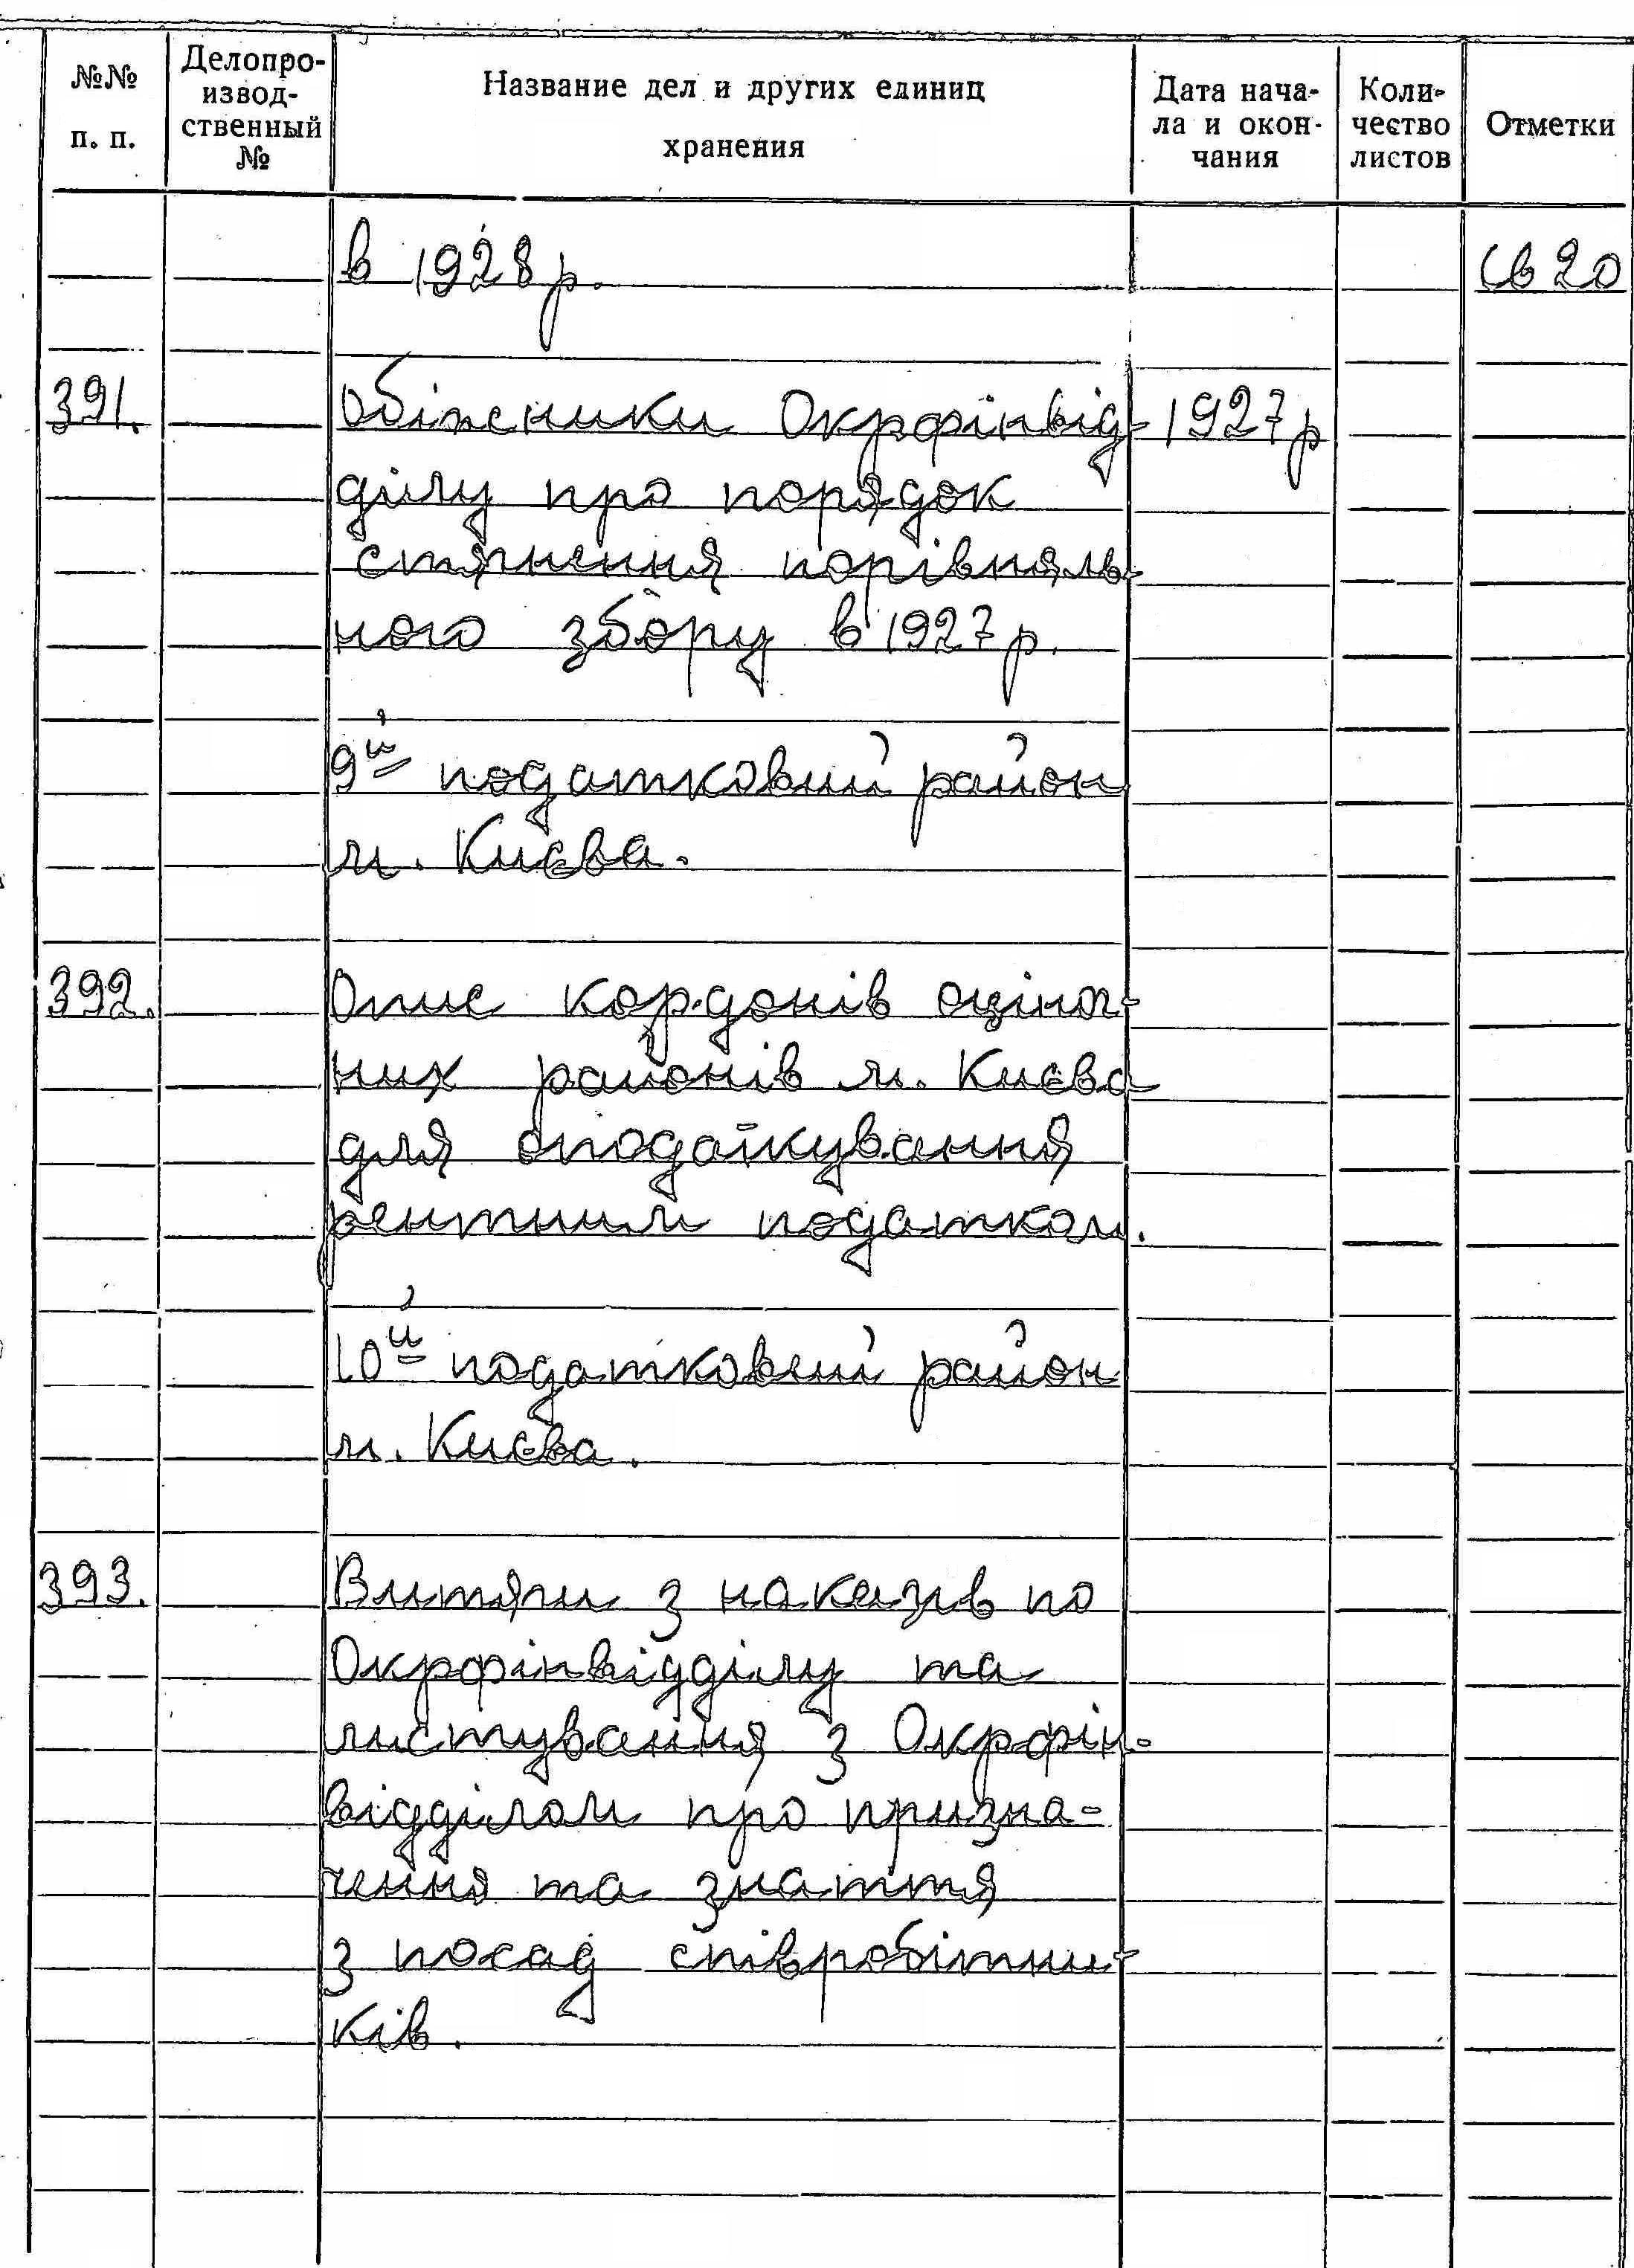 №№ п. п. Делопро-извод-ственный № Название дел и других единиц хранения Дата нача-ла и окон-чания Коли-чество листов Отметки
в 1928 р. Св 20
391. Обіжники Окрфінвід- 1927 р
ділу про порядок
стягнення порівняль-
ного збору в 1927 р.
9й податковий район
м. Києва.
392. Опис кордонів оціноч-
них районів м. Києва
для оподаткування
рентним податком.
10й податковий район
м. Києва.
393. Витяги з наказів по
Окрфінвідділу та
листування з Окрфін-
відділом про призна-
чення та зняття
з посад співробітни-
ків.